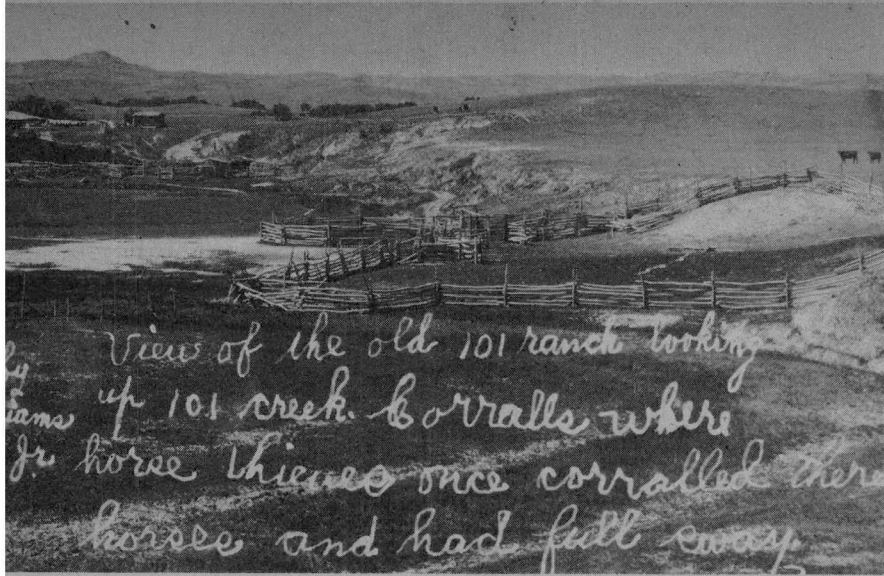 View of the old 101 ranch looking
up 101 creek. Corralls where
horse thieves once corralled there
horses and had full sway
Jr.